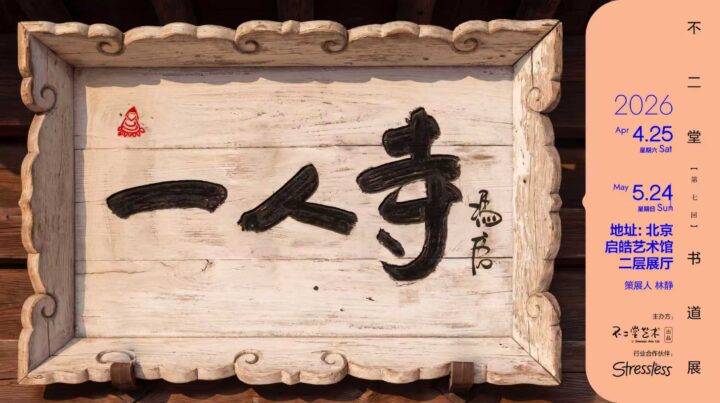 一人寺
不二堂【第七回】书道展
2026
Apr 4.25
星期六 Sat
May 5.24
星期日 Sun
地址: 北京
启皓艺术馆
二层展厅
策展人 林静
主办方:
不二堂艺术
行业合作伙伴:
Stressless